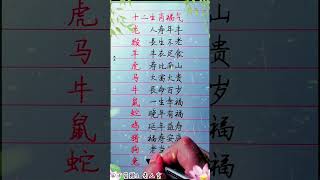 十二生肖福气
龙 人寿年丰
猴 长生不老
羊 丰衣足食
虎 寿比南山
马 大富大贵
牛 长命百岁
鼠 一生幸福
蛇 晚年有福
鸡 延年益寿
猪 福寿安康
狗
兔
虎
马
牛
鼠
蛇
贵
岁
福